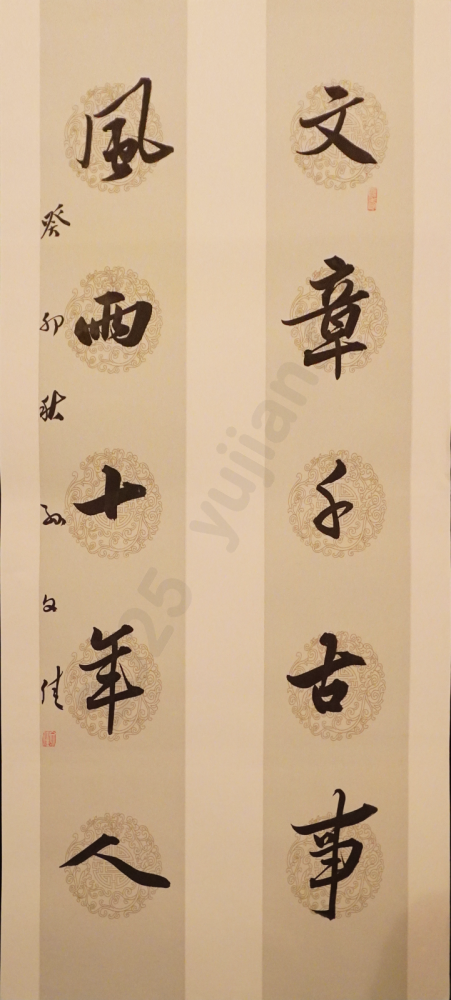 文章千古事
風雨十年人
癸卯秋孙文佳
25 yujian